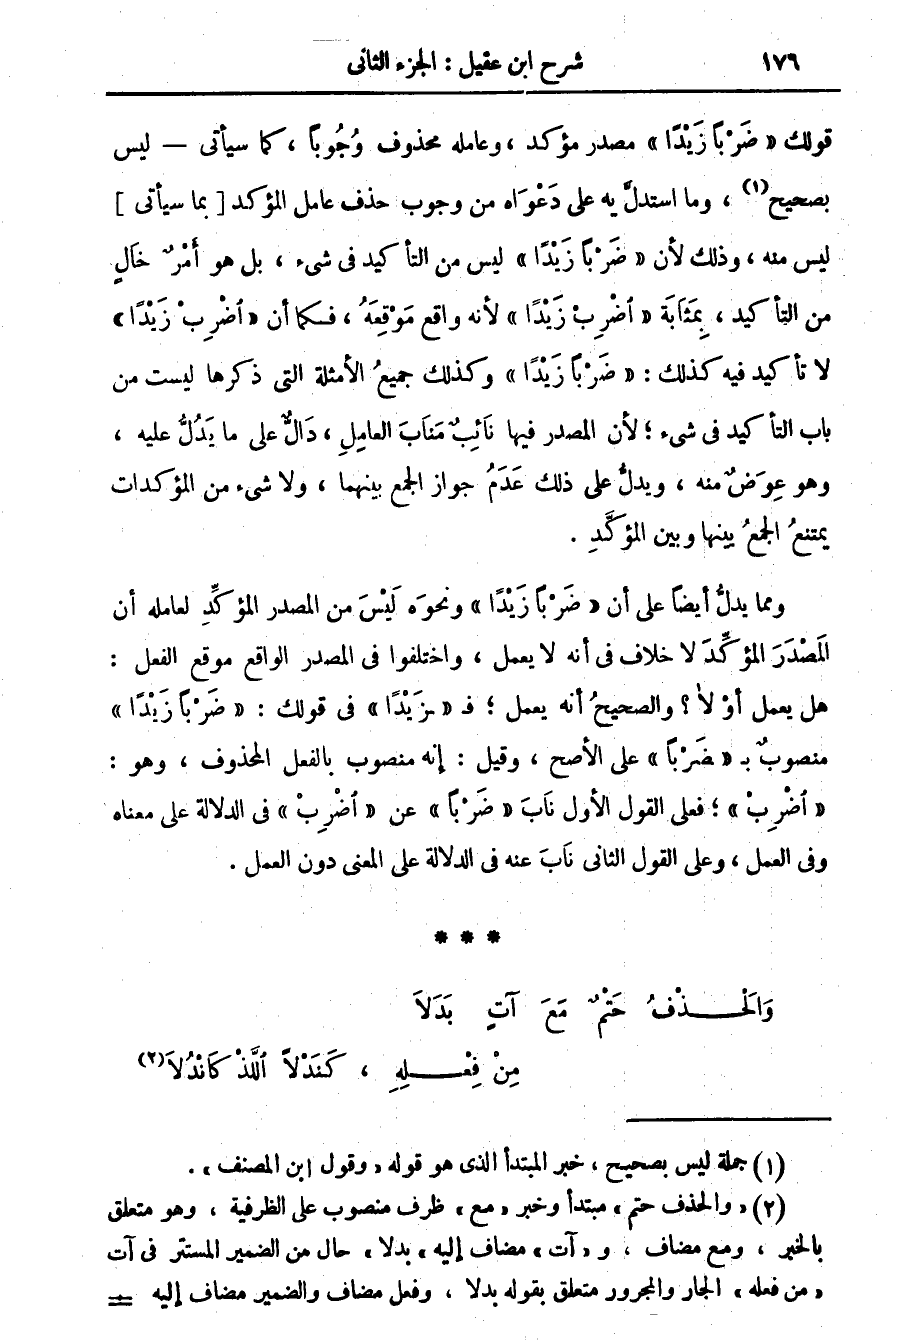 ١٧٦ شرح ابن عقيل : الجزء الثانى
قولك « ضَرْباً زَيْدًا » مصدر مؤكد ، وعامله محذوف وُجُوباً ، كما سيأتى — ليس
بصحيح(١) ، وما استدلَّ به على دَعْوَاه من وجوب حذف عامل المؤكد [ بما سيأتى ]
ليس منه ، وذلك لأن « ضَرْباً زَيْدًا » ليس من التأكيد فى شىء ، بل هو أَمْرٌ خَالٍ
من التأكيد ، بِمَثَابَة « ٱضْرِبْ زَيْدًا » لأنه واقع مَوْقِعَهُ ، فكما أن « ٱضْرِبْ زَيْدًا »
لا تأكيد فيه كذلك : « ضَرْباً زَيْدًا » وكذلك جميعُ الأمثلة التى ذكرها ليست من
باب التأكيد فى شىء ؛ لأن المصدر فيها نَائِبٌ مَنَابَ العامِلِ ، دَالٌّ على ما يَدُلُّ عليه ،
وهو عِوَضٌ منه ، ويدلُّ على ذلك عَدَمُ جواز الجمع بينهما ، ولا شىء من المؤكدات
يمتنعُ الجمعُ بينها وبين المؤكَّدِ .
ومما يدلُّ أيضاً على أن « ضَرْباً زَيْدًا » ونحوَه لَيْسَ من المصدر المؤكِّدِ لعامله أن
المَصْدَرَ المؤكِّدَ لا خلاف فى أنه لا يعمل ، واختلفوا فى المصدر الواقع موقع الفعل :
هل يعمل أوْ لاَ ؟ والصحيحُ أنه يعمل ؛ فـ « ـزَيْدًا » فى قولك : « ضَرْباً زَيْدًا »
منصوبٌ بـ « ـضَرْباً » على الأصح ، وقيل : إنه منصوب بالفعل المحذوف ، وهو :
« ٱضْرِبْ » ؛ فعلى القول الأول نَابَ « ضَرْباً » عن « ٱضْرِبْ » فى الدلالة على معناه
وفى العمل ، وعلى القول الثانى نَابَ عنه فى الدلالة على المعنى دون العمل .
* * *
وَالْحَــذْفُ حَتْمٌ مَعَ آتٍ بَدَلاَ
مِنْ فِعْــلِهِ ، كَنَدْلاً ٱللَّذْ كَانْدُلاَ(٢)
(١) جملة ليس بصحيح ، خبر المبتدأ الذى هو قوله « وقول ابن المصنف » .
(٢) « والحذف حتم » مبتدأ وخبر « مع » ظرف منصوب على الظرفية ، وهو متعلق
بالخبر ، ومع مضاف ، و « آت » مضاف إليه « بدلا » حال من الضمير المستتر فى آت
« من فعله » الجار والمجرور متعلق بقوله بدلا ، وفعل مضاف والضمير مضاف إليه =